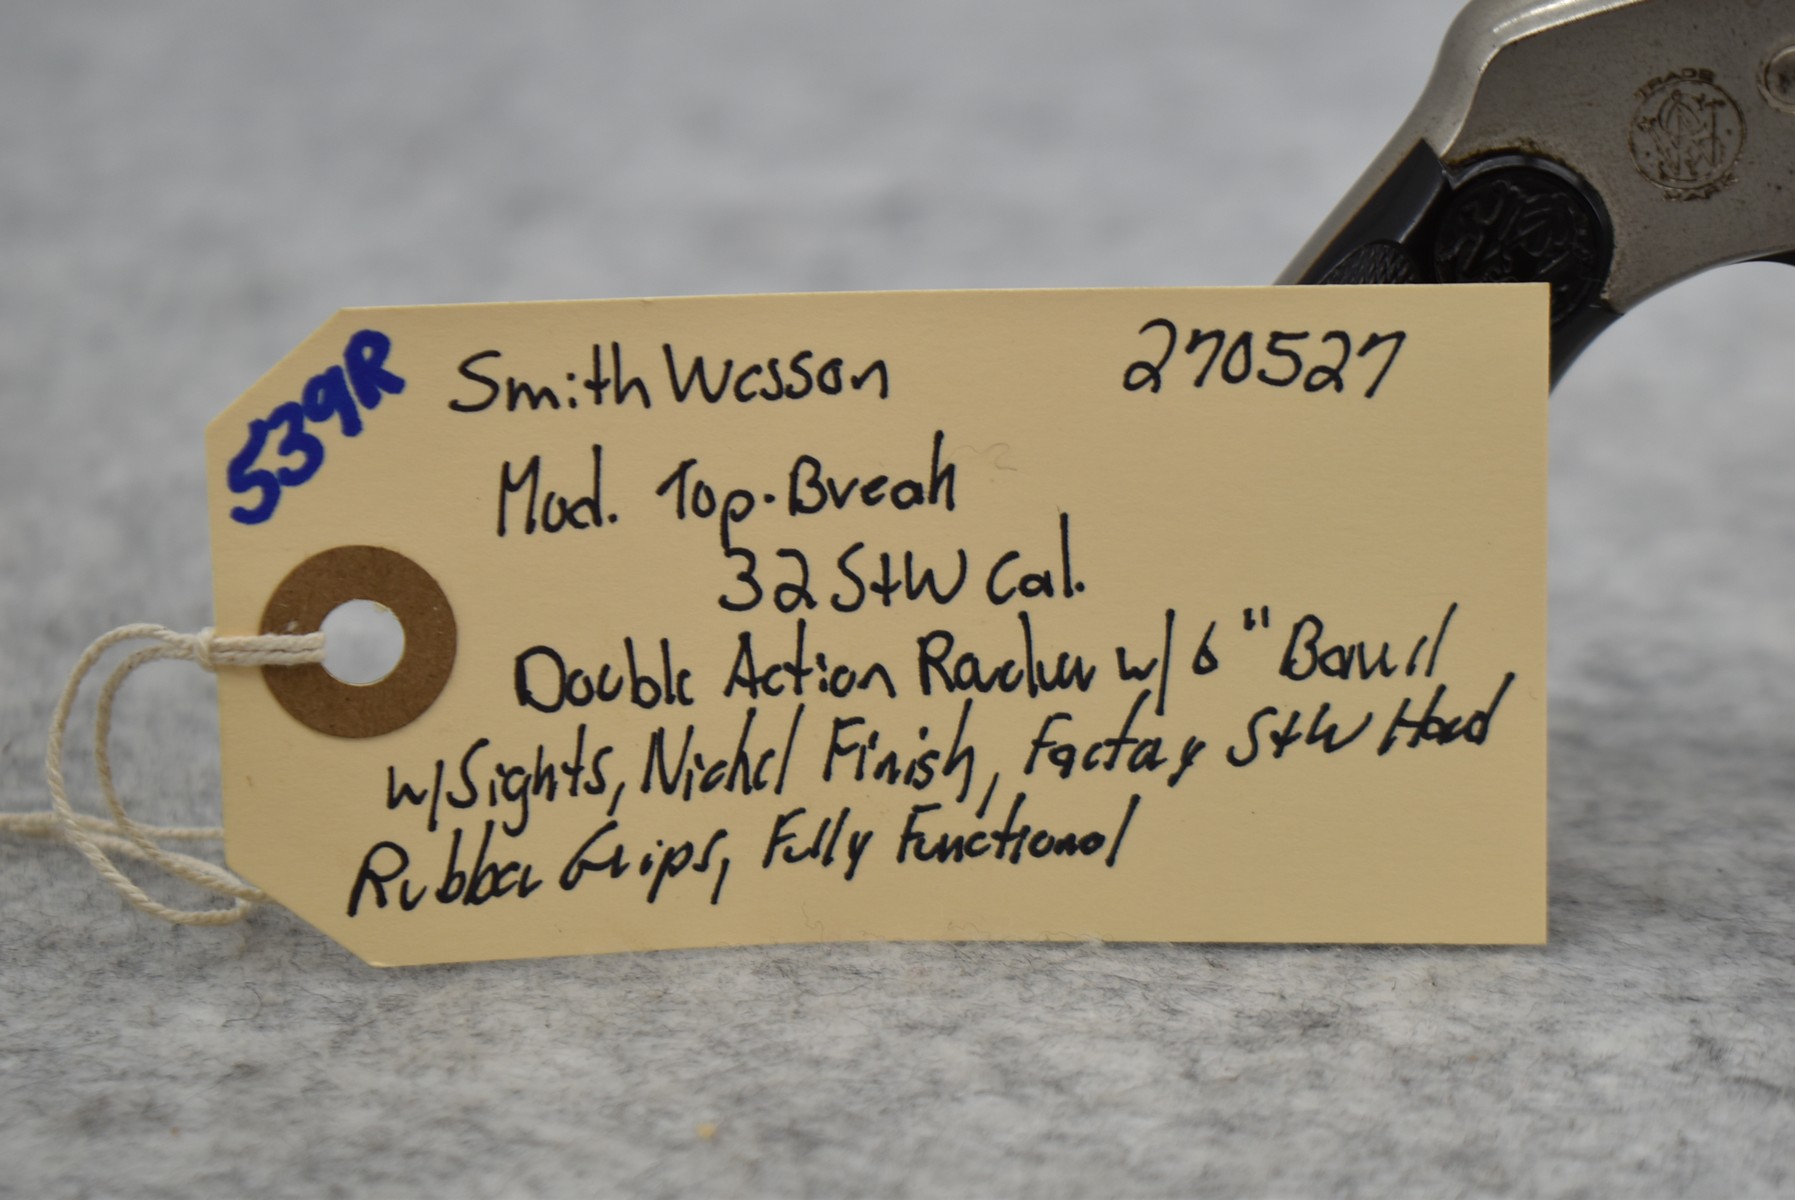 539R
Smith Wesson 270527
Mod. Top-Break
32 S+W Cal.
Double Action Revolver w/ 6" Barrel
w/Sights, Nickel Finish, Factory S+W Hard
Rubber Grips, Fully Functional
TRADE
MARK